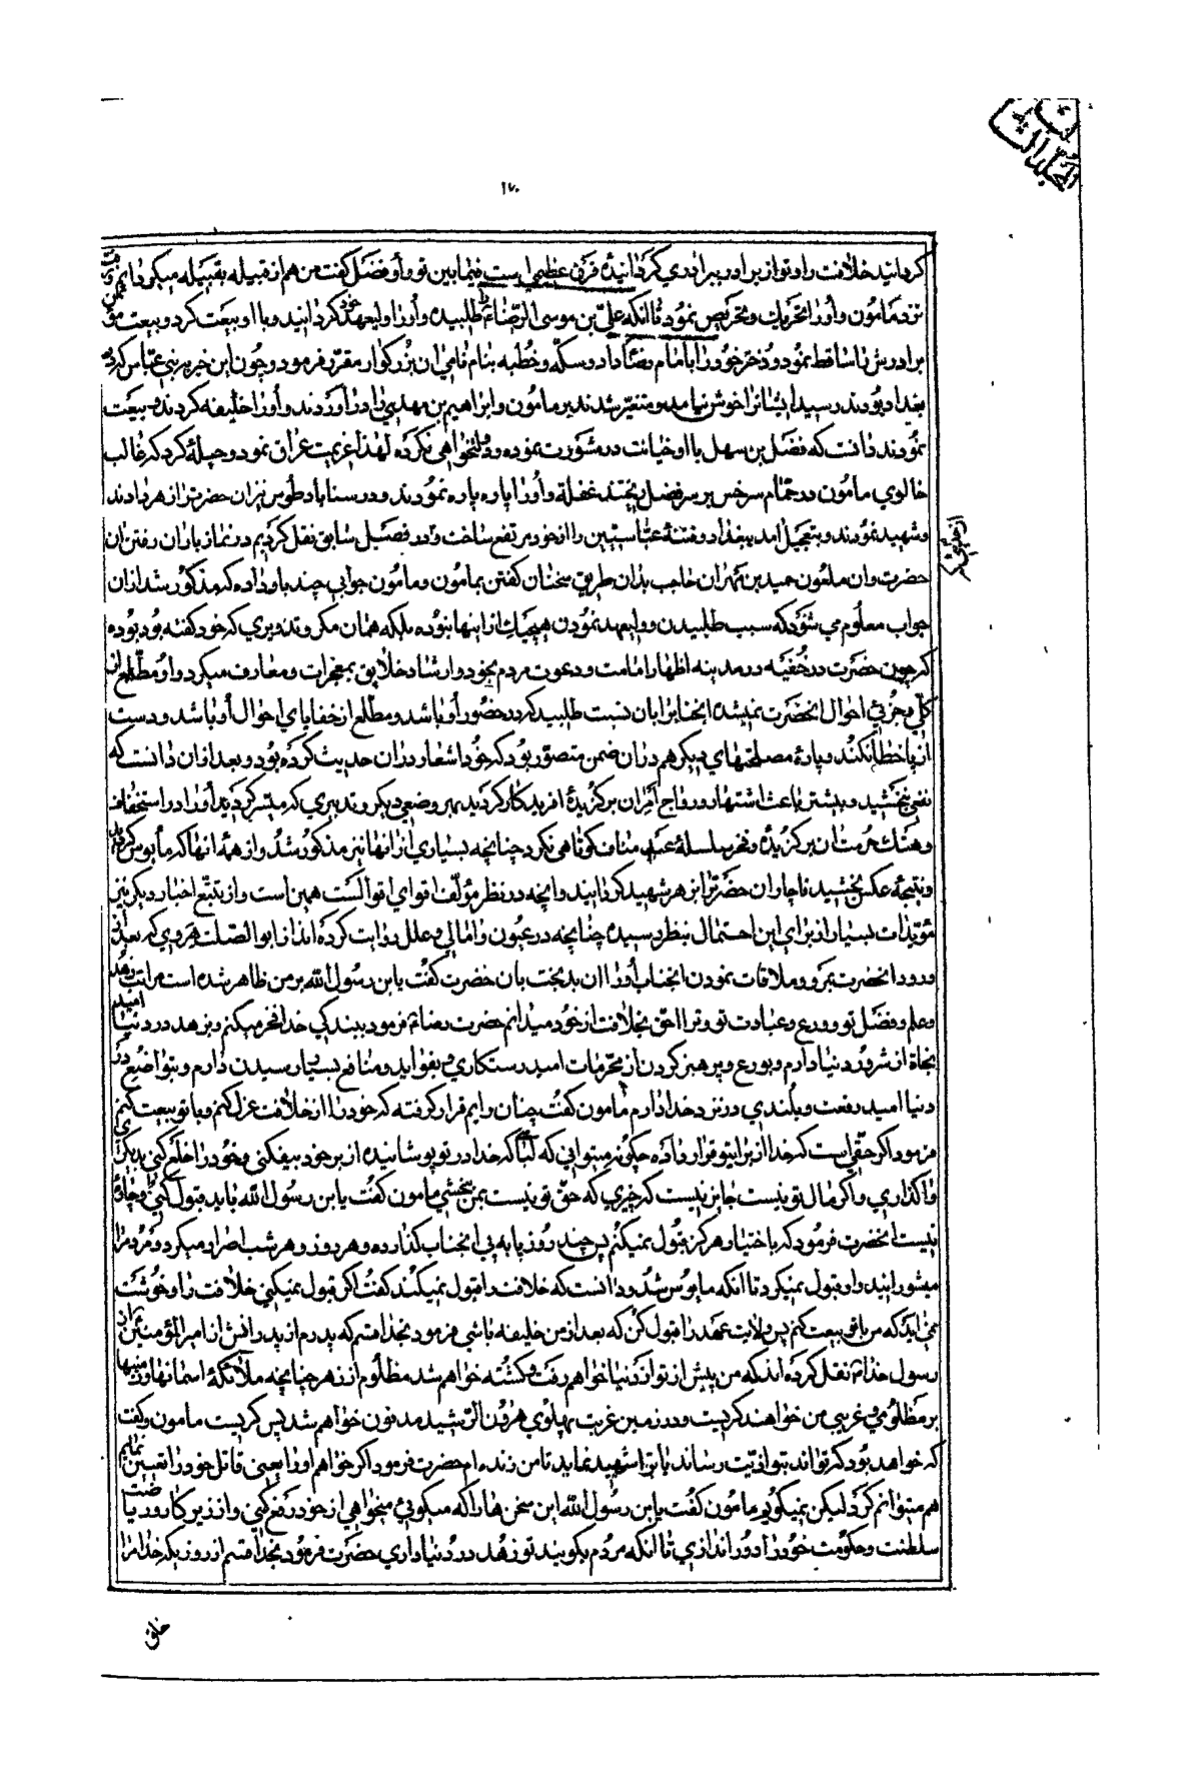 ١٧٠
كردانيد خلافت را و تو از برادر ببرادري كردانيدۀ فرق عظيمي است فيما بين تو و او فضل كفت من هم از قبيله بقبيله ميكردانم
نزد مامون و او را تحريك و تحريص نمود تا انكه علي بن موسى الرضا ع طلبيده و او را وليعهد خود كردانيد و با او بيعت كرد و بيعت مؤتمن
برادرش را ساقط نمود و دختر خود را بامام رضا ع داد و سكه و خطبه بنام نامي ان بزركوار مقرر فرمود و چون اين خبر به بني عباس كه در
بغداد بودند رسيد ايشانرا خوش نيامد و متغير شدند بر مامون و ابراهيم بن مهدي را در اوردند و او را خليفه كردند و بيعت
نمودند دانست كه فضل بن سهل با او خيانت در مشورت نموده و دولتخواهي نكرده لهذا عزيمت عراق نمود و حيله كرد كه غالب
خالوي مامون در حمام سرخس بر سر فضل ريختند غفلة و او را پاره پاره نمودند و در سناباد طوس نيز ان حضرت را زهر دادند
و شهيد نمودند و بتعجيل امد ببغداد و فتنۀ عباسيين را از خود مرتفع ساخت و در فصل سابق نقل كرديم در نماز باران رفتن ان
حضرت و ان ملعون حميد بن مهران حاجب بدان طريق سخنان كفتن بمامون و مامون جوابي چند باو داده كه مذكور شد از ان
جواب معلوم مي شود كه سبب طلبيدن و وليعهد نمودن هيچيك از اينها نبوده بلكه همان مكر و تدبيري كه خود كفته بود بوده
كه چون حضرت در خفيه در مدينه اظهار امامت و دعوت مردم بخود و ارشاد خلايق بمعجزات و معارف ميكرد و او مطلع از
كلي و جزئي احوال انحضرت نميشد انجناب را بان نسبت طلبيد كه در حضور او باشد و مطلع از خفاياي احوال او باشد و دست
از پا خطا نكند و پارۀ مصلحتهاي ديكر هم در ان ضمن متصور بود كه خود اشعار در ان حديث كرده بود و بعد از ان دانست كه
نفعي نبخشيد و بيشتر باعث اشتهار و رواج امر ان بركزيدۀ افريدكار كرديد بهر وضعي ديكر و تدبيري كه ميسر كرديد او را در استخفاف
و هتك حرمت ان بركزيده و فخر سلسلۀ عبد مناف كوتاهي نكرد چنانچه بسياري از انها نيز مذكور شد و از همۀ انها كه مأيوس كرديد
و نتيجۀ عكس بخشيد ناچار ان حضرت را بزهر شهيد كردانيد و انچه در نظر مؤلف اقواي اقوالست همين است و از تتبع اخبار ديكر نيز
مؤيدات بسيار از براي اين احتمال بنظر رسيده چنانچه در عيون و امالي و علل روايت كرده اند از ابو الصلت هروي كه بعد از
ورود انحضرت بمرو و ملاقات نمودن انجناب او را ان بدبخت بان حضرت كفت يابن رسول الله بر من ظاهر شده است مراتب زهد
و علم و فضل تو و ورع و عبادت تو و ترا احق بخلافت از خود ميدانم حضرت رضا ع فرمود ببندكي خدا فخر ميكنم و بزهد در دنيا اميد
نجاة از شرور دنيا دارم و بورع و پرهيز كردن از محرمات اميد رستكاري و بفوايد و منافع بسيار رسيدن دارم و بتواضع در
دنيا اميد رفعت و بلندي در نزد خدا دارم مامون كفت چنان رايم قرار كرفته كه خود را از خلافت عزل كنم و با تو بيعت كنم
فرمود اكر حقي است كه خدا از براي تو قرار داده چكونه ميتواني كه لباسي كه خدا در تو پوشانيده از بر خود بيفكني و خود را خلع كني بديكري
واكذاري و اكر مال تو نيست جايز نيست كه چيزي كه حق تو نيست بمن بخشي مامون كفت يابن رسول الله بايد قبول كني و چارۀ
نيست انحضرت فرمود كه باختيار هركز قبول نميكنم پس چند روز پا به پي انجناب كذارده و هر روز و هر شب اصرار ميكرد و مردم را
ميشورانيد و او قبول نميكرد تا انكه مايوس شد و دانست كه خلافت را قبول نميكند كفت اكر قبول نميكني خلافت را و خوشت
نمي ايد كه من با تو بيعت كنم پس ولايت عهد را قبول كن كه بعد از من خليفه باشي فرمود بخدا قسم كه پدرم از پدرانش از امير المؤمنين از
رسول خدا ص نقل كرده اند كه من پيش از تو از دنيا خواهم رفت و كشته خواهم شد مظلوم از زهر چنانچه ملائكۀ اسمانها و زمينها
بر مظلومي و غريبي من خواهند كريست و در زمين غربت پهلوي هرون الرشيد مدفون خواهم شد پس كريست مامون و كفت
كه خواهد بود كه تواند بتو اذيت رساند يا ترا شهيد نمايد تا من زنده ام حضرت فرمود اكر خواهم او را يعني قاتل خود را تعيين نمايم
هم ميتوانم كرد ليكن نميكويم مامون كفت يابن رسول الله اين سخن ها را كه ميكوئي ميخواهي از خود رفع كني و از زير كار و رياضت
سلطنت و حكومت خود را دور اندازي تا انكه مردم بكويند تو زهد در دنيا داري حضرت فرمود بخدا قسم از روزيكه خدا مرا
خلق